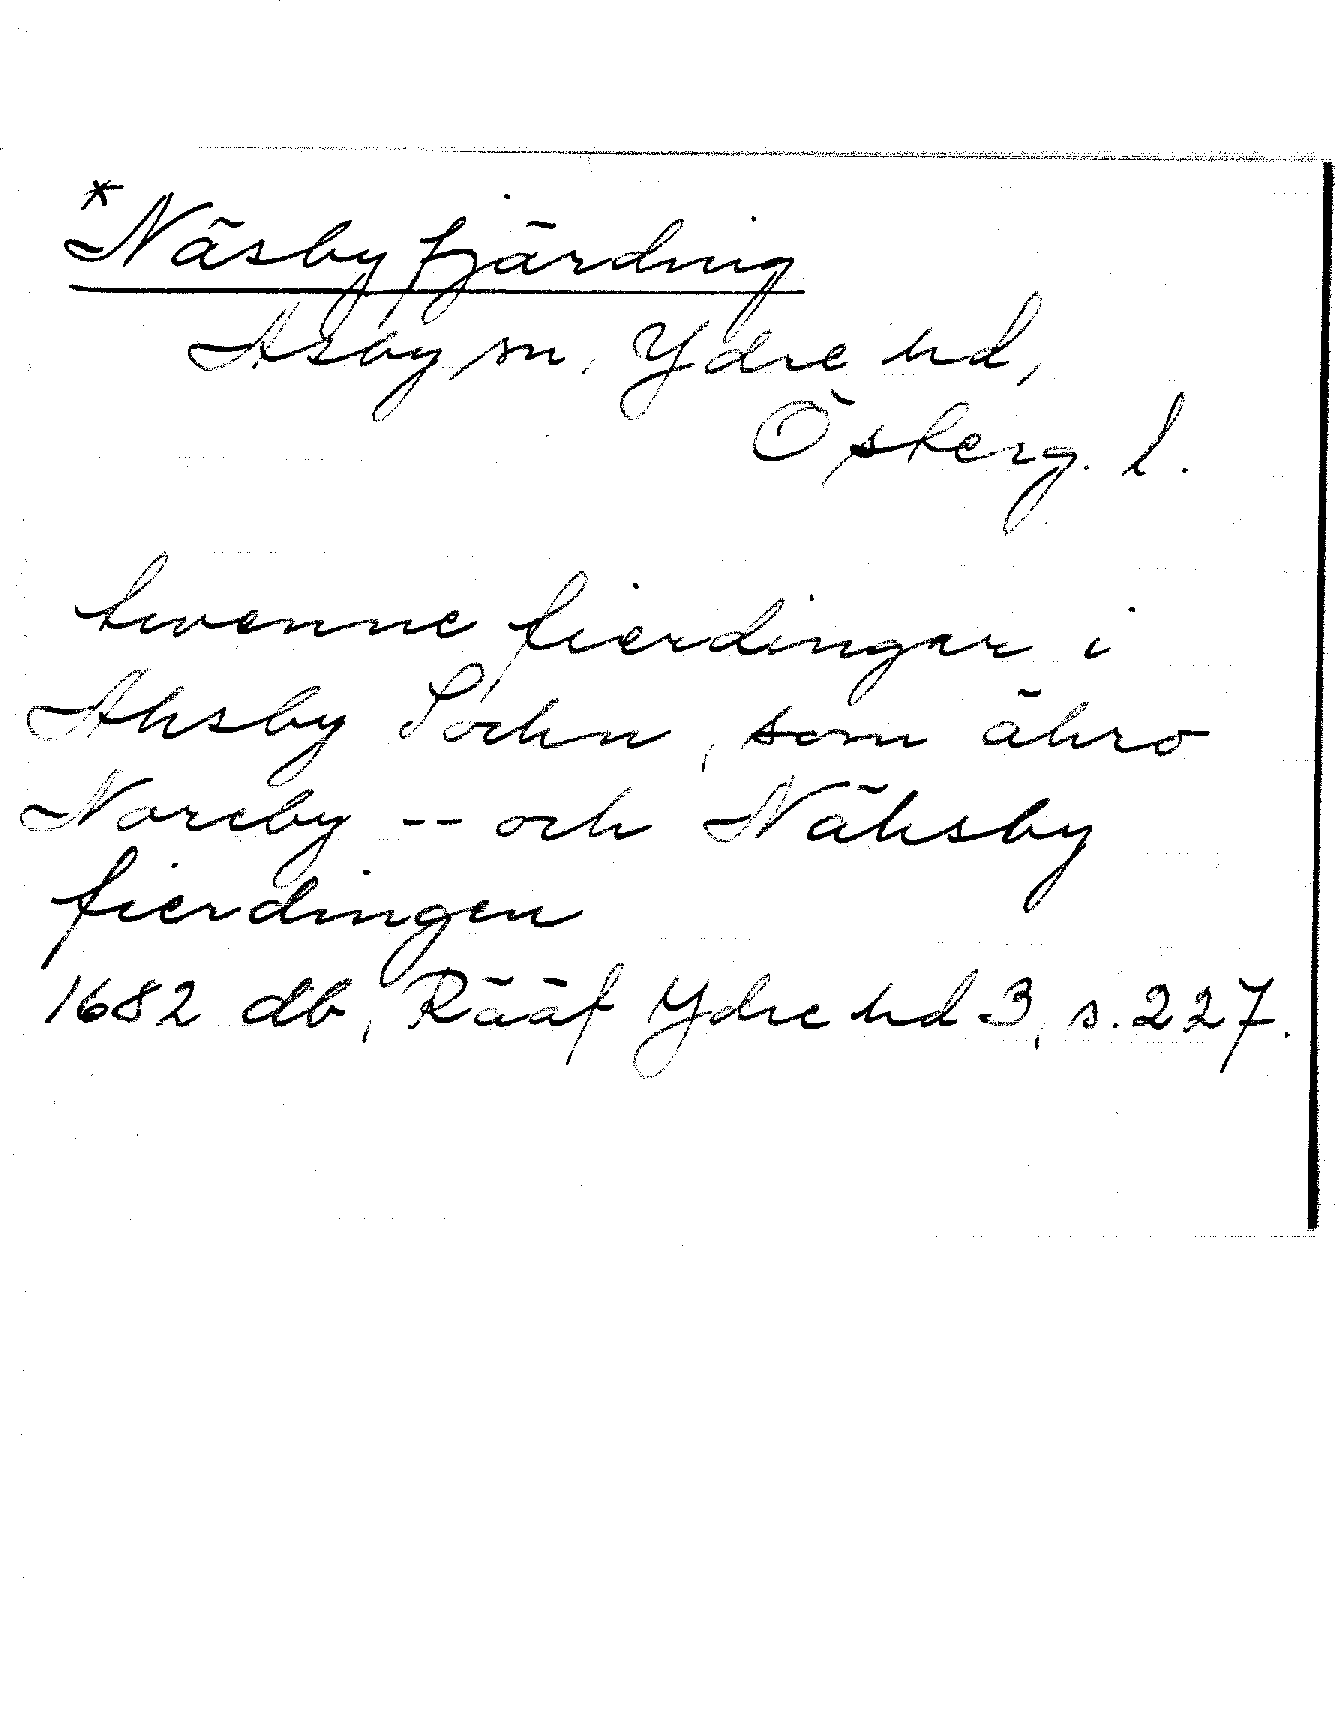 *Näsby fjärding
Asby sn, Ydre hd,
Österg. l.
twenne fierdingar i
Ahsby Sochn, som ähro
Noreby -- och Nähsby
fierdingen
1682 db, Rääf Ydre hd 3, s. 227.